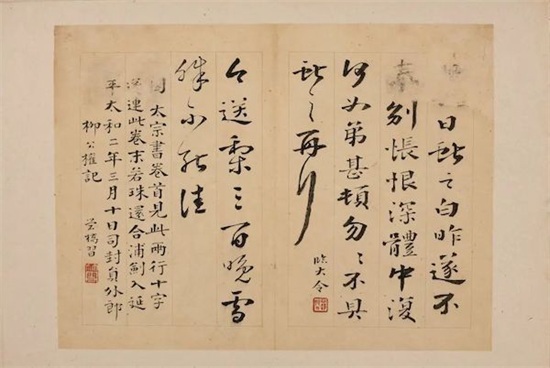 日獻之白昨遂不
奉別悵恨深體中復
何如弟甚頓勿勿不具
獻之再拜
臨大令
今送梨三百晚雪
殊不能佳
因太宗書卷首見此兩行十字
遂連此卷末若珠還合浦劍入延
平太和二年三月十日司封員外郎
柳公權記